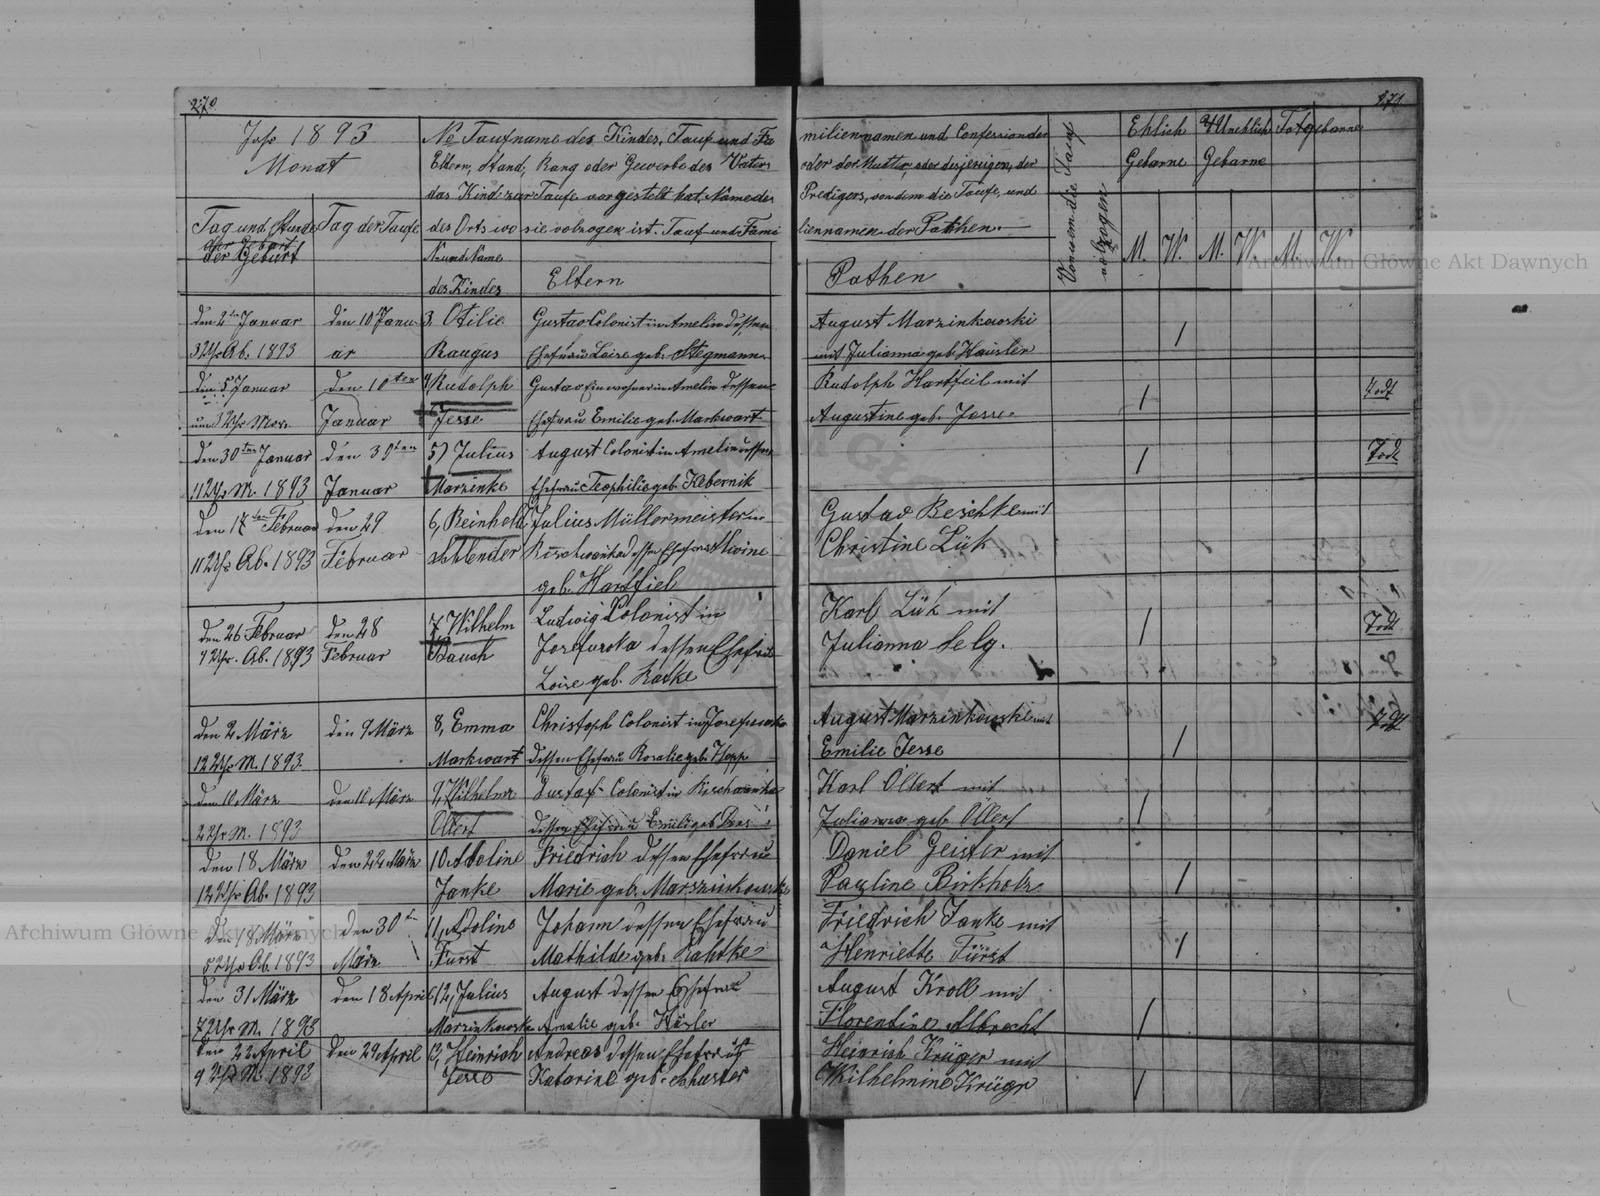 270
271
Jahr 1893
Monat
Tag und Stunde
der Geburt
der Geburt
Tag der Taufe
No Taufname des Kindes, Tauf und Fa
Eltern, Stand, Rang oder Gewerbe des Vaters
das Kind zur Taufe vorgestelt hat, Name des
des Orts wo sie volzogen ist. Tauf und Fami
No und Name
des Kindes
Eltern
miliennamen und Confession der
oder der Mutter, oder desjenigen, der
Predigers, von dem die Taufe, und
liennamen der Pathen.
Pathen
Von wem die Tauf
volzogen
Ehlich
Geborne
Unehlich
Geborne
Totgeborne
M. W. M. W. M. W.
den 2ten Januar
3 Uhr Ab. 1893
den 10 Janu
ar
3, Otilie
Raugus
Gustav Colonist in Amelin dessen
Ehefrau Loise geb. Stegmann
August Marzinkowski
mit Julianna geb. Häusler
den 5 Januar
um 3 Uhr Mor.
den 10ten
Januar
4, Rudolph
Jesse
Gustav Einwohner in Amelin dessen
Ehefrau Emilie geb. Markwart
Rudolph Hartfeil mit
Augustine geb. Jesse
Todt
den 30ten Januar
11 Uhr M. 1893
den 30ten
Januar
5) Julius
Marzinke
August Colonist in Amelin dessen
Ehefrau Teophilie geb. Kebernik
Todt
Februar
11 Uhr Ab. 1893
den 29
Februar
6, Reinhold
Schlender
Julius Müllermeister in
dessen Ehefrau
geb. Hartfiel
Gustav Reschke mit
Christine Lük
den 26 Februar
Uhr. Ab. 1893
den 28
Februar
7, Wilhelm
Bauch
Ludwig Colonist in
Josefurska dessen Ehefrau
Loise geb. Radke
Karl Lük mit
Julianna Selg.
Todt
den 2 März
12 Uhr M. 1893
den 9 März
8, Emma
Markwart
Christoph Colonist in
dessen Ehefrau Rosalie geb. Hopp
August Marzinkowski mit
Emilie Jesse
Todt
den 10 März
2 Uhr M. 1893
den 11 März
9, Wilhelm
Ollert
Gustaf Colonist in
dessen Ehefrau
Karl Ollert mit
Julianna geb. Ollert
den 18 März
12 Uhr Ab. 1893
den 22 März
10 Adoline
Janke
Friedrich dessen Ehefrau
Marie geb. Marszinkowski
Daniel Geister mit
Pauline Birkholz
den 18 März
5 Uhr Ab. 1893
den 30
März
11, Adoline
Fürst
Johann dessen Ehefrau
Mathilde geb. Rahtke
Friedrich Janke mit
Henriette Fürst
den 31 März
7 Uhr M. 1893
den 18 April
12, Julius
Marzinkowski
August dessen Ehefrau
Amalie geb. Häsler
August Kroll mit
Florentine Albrecht
den 22 April
9 Uhr M. 1893
den 29 April
13, Heinrich
Jesse
Andreas dessen Ehefrau
Katarine geb.
Heinrich Krüger mit
Wilhelmine Krüger
Archiwum Główne Akt Dawnych
Archiwum Główne Akt Dawnych